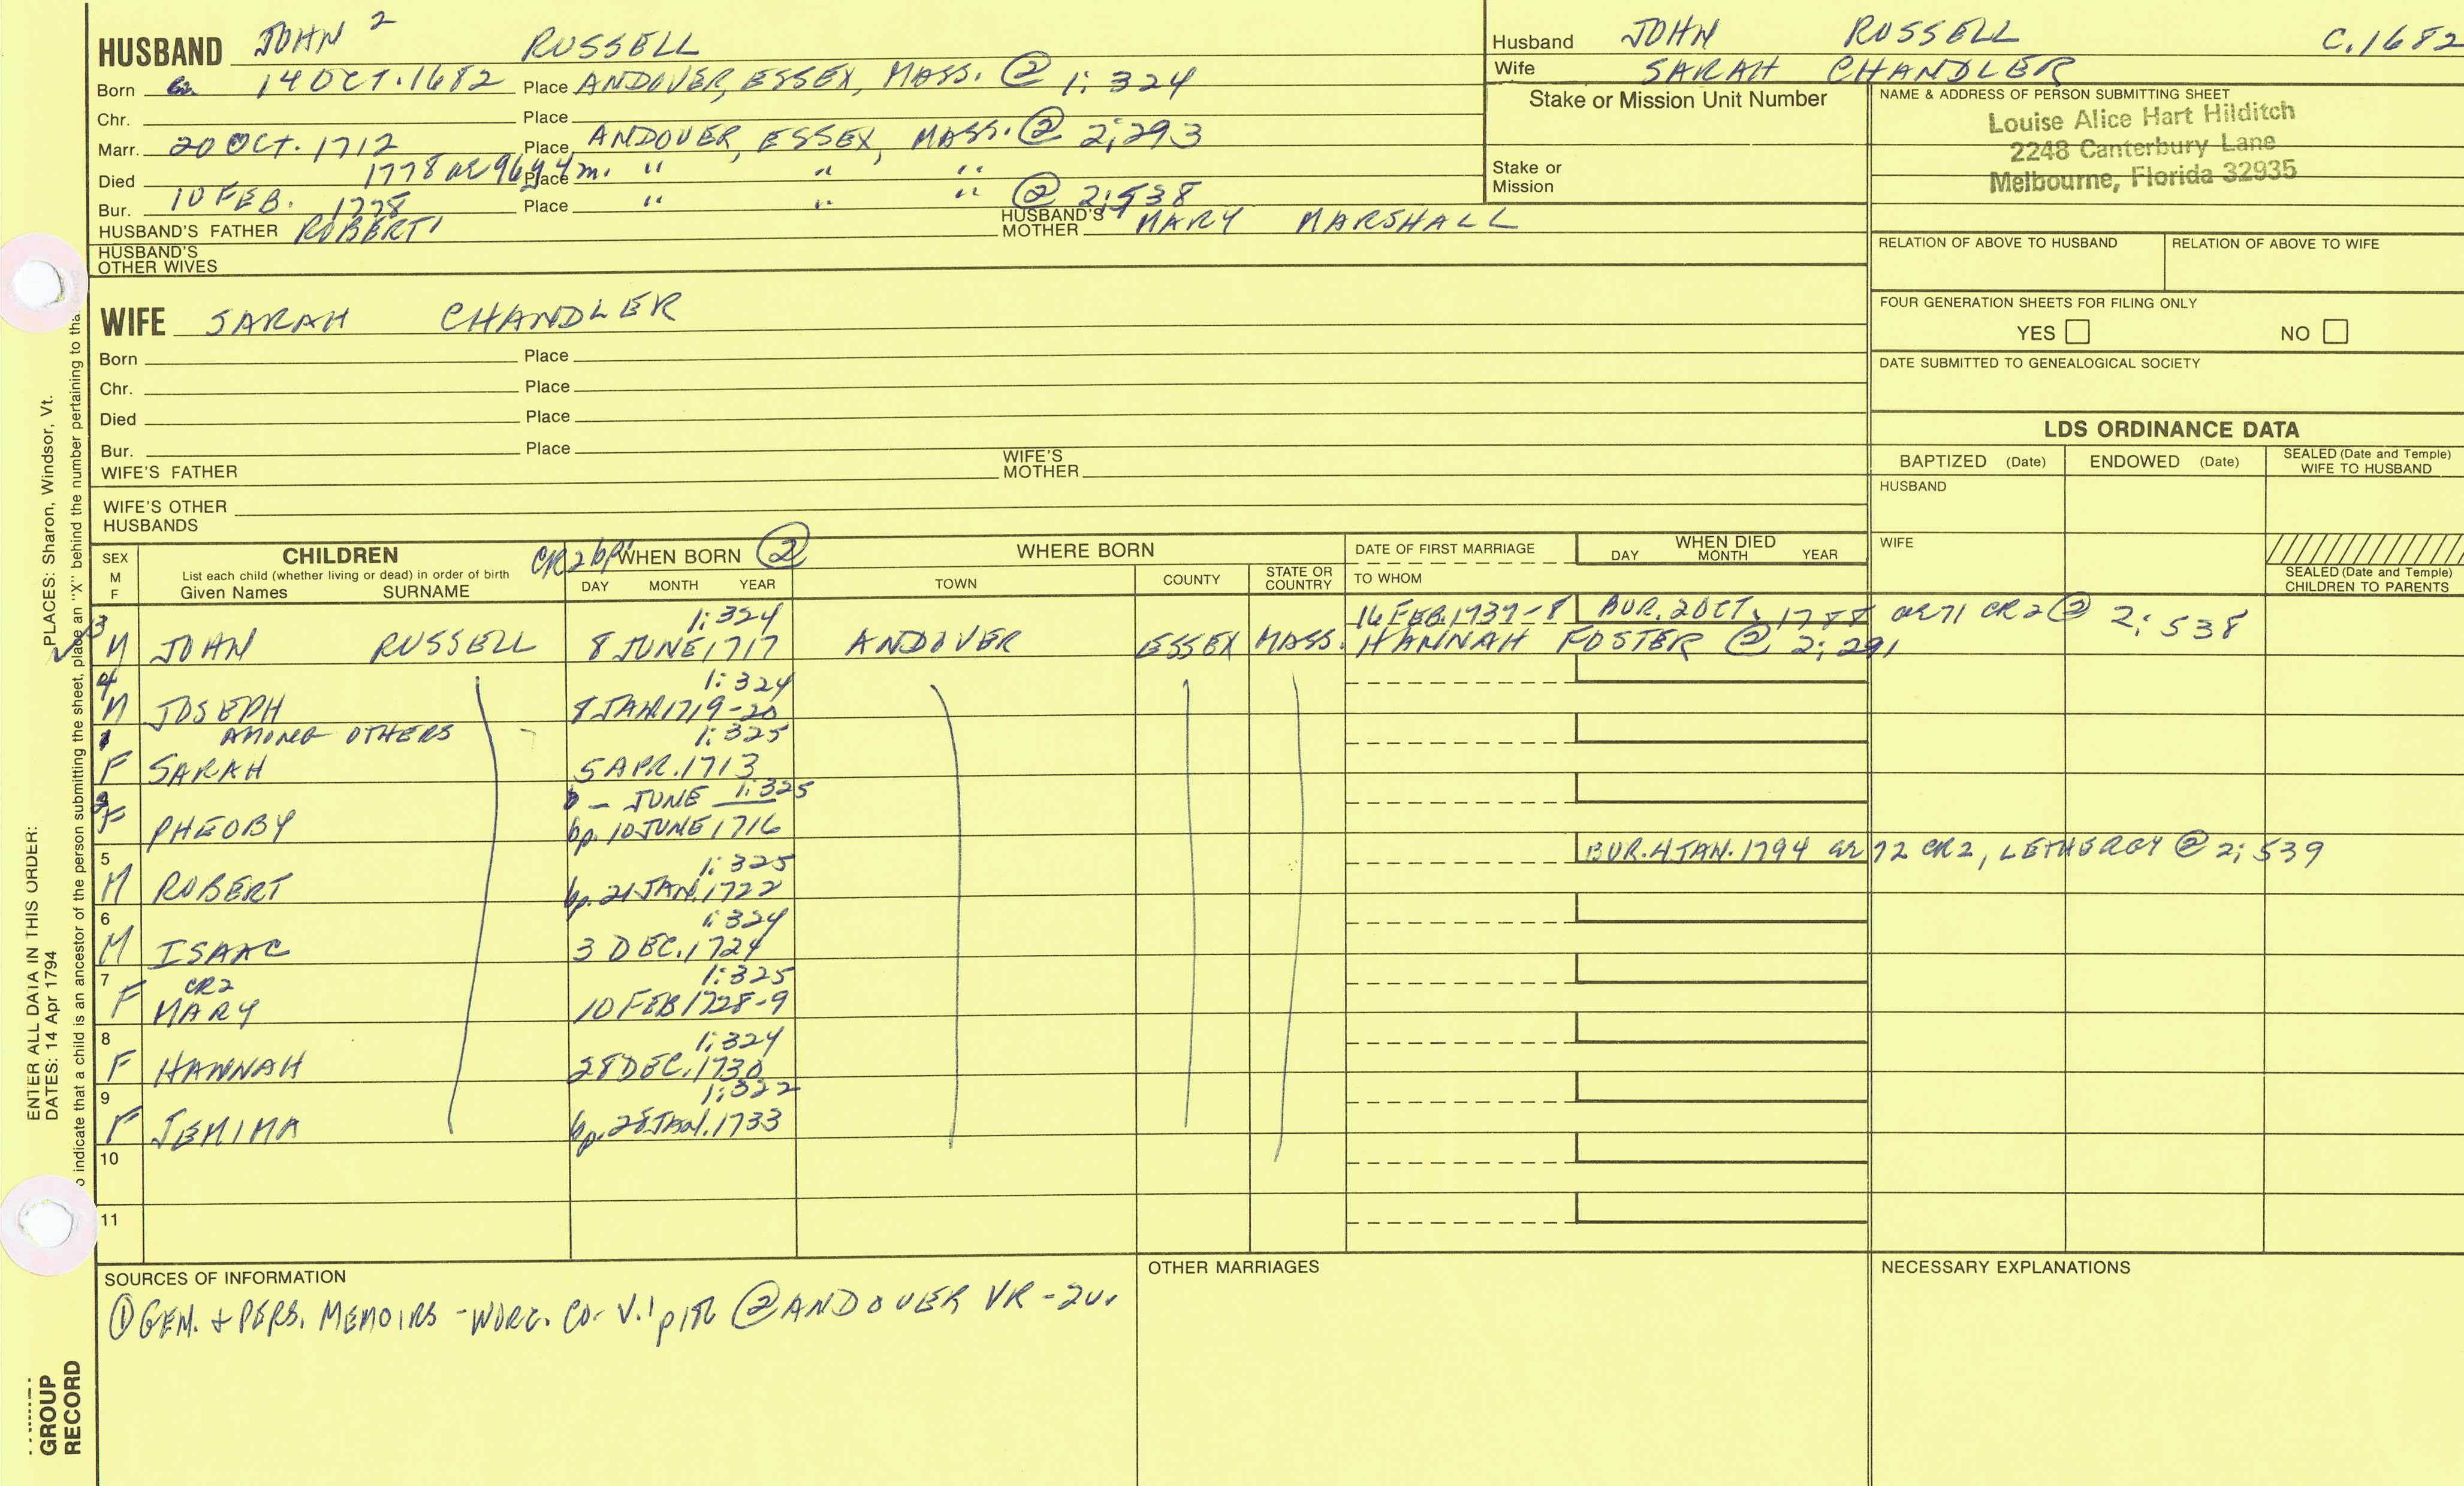 HUSBAND JOHN 2 RUSSELL
Born 14 OCT. 1682 Place ANDOVER, ESSEX, MASS. @ 1:324
Chr. Place
Marr. 20 OCT. 1712 Place ANDOVER, ESSEX, MASS. @ 2;293
Died 1778 ae 96y 4m. Place " " "
Bur. 10 FEB. 1778 Place " " " @ 2;538
HUSBAND'S FATHER ROBERT1 HUSBAND'S MOTHER MARY MARSHALL
HUSBAND'S OTHER WIVES
WIFE SARAH CHANDLER
Born Place
Chr. Place
Died Place
Bur. Place
WIFE'S FATHER WIFE'S MOTHER
WIFE'S OTHER HUSBANDS
Husband JOHN RUSSELL C.1682
Wife SARAH CHANDLER
Stake or Mission Unit Number
Stake or Mission
NAME & ADDRESS OF PERSON SUBMITTING SHEET
Louise Alice Hart Hilditch
2248 Canterbury Lane
Melbourne, Florida 32935
RELATION OF ABOVE TO HUSBAND RELATION OF ABOVE TO WIFE
FOUR GENERATION SHEETS FOR FILING ONLY
YES NO
DATE SUBMITTED TO GENEALOGICAL SOCIETY
LDS ORDINANCE DATA
BAPTIZED (Date) ENDOWED (Date) SEALED (Date and Temple) WIFE TO HUSBAND
HUSBAND
WIFE
SEALED (Date and Temple) CHILDREN TO PARENTS
SEX M F
CHILDREN
List each child (whether living or dead) in order of birth
Given Names SURNAME
CR2 WHEN BORN 2
DAY MONTH YEAR
WHERE BORN
TOWN COUNTY STATE OR COUNTRY
DATE OF FIRST MARRIAGE
TO WHOM
WHEN DIED
DAY MONTH YEAR
3 1:324 16 FEB. 1737-8 BUR. 2 OCT. 1788 ae 71 CR2 @ 2; 538
M JOHN RUSSELL 8 JUNE 1717 ANDOVER ESSEX MASS. HANNAH FOSTER @ 2; 291
4 1:324
M JOSEPH 8 JAN. 1719-20
1 AMONG OTHERS 1:325
F SARAH 5 APR. 1713
2 – JUNE 1:325
F PHEOBY bp. 10 JUNE 1716
5 1:325 BUR. 4 JAN. 1794 ae 72 CR2, LETHERGY @ 2; 539
M ROBERT bp. 21 JAN. 1722
6 1:324
M ISAAC 3 DEC. 1724
7 CR2 1:325
F MARY 10 FEB 1728-9
8 1:324
F HANNAH 28 DEC. 1730
9 1:322
F JEMIMA bp. 28 JAN. 1733
10
11
SOURCES OF INFORMATION
① GEN. + PERS. MEMOIRS - WORC. CO- V.1 @ ANDOVER VR - 2v.
OTHER MARRIAGES
NECESSARY EXPLANATIONS
ENTER ALL DATA IN THIS ORDER:
DATES: 14 Apr 1794
PLACES: Sharon, Windsor, Vt.
indicate that a child is an ancestor of the person submitting the sheet, place an "X" behind the number pertaining to
GROUP
RECORD